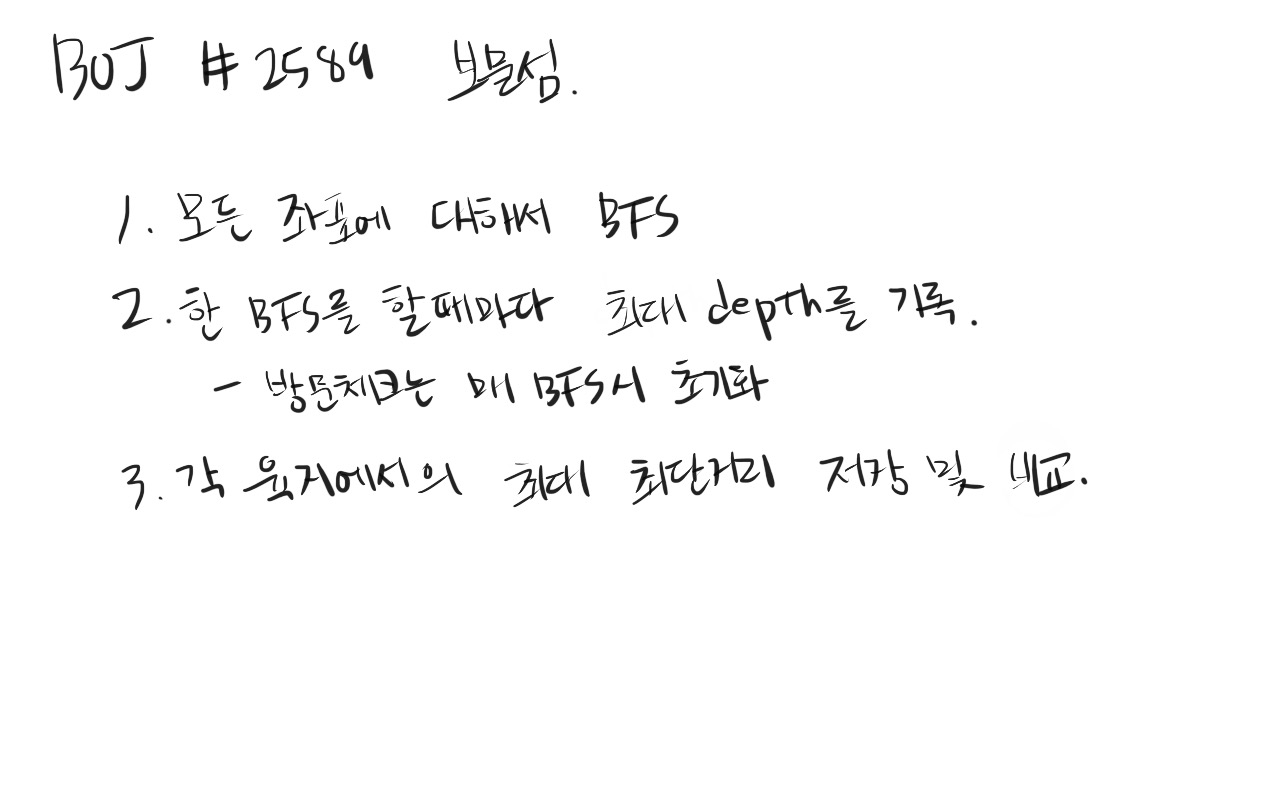 BOJ #2589 보물섬.
1. 모든 좌표에 대해서 BFS
2. 한 BFS를 할때마다 최대 depth를 기록.
- 방문체크는 매 BFS시 초기화
3. 각 육지에서의 최대 최단거리 저장 및 비교.